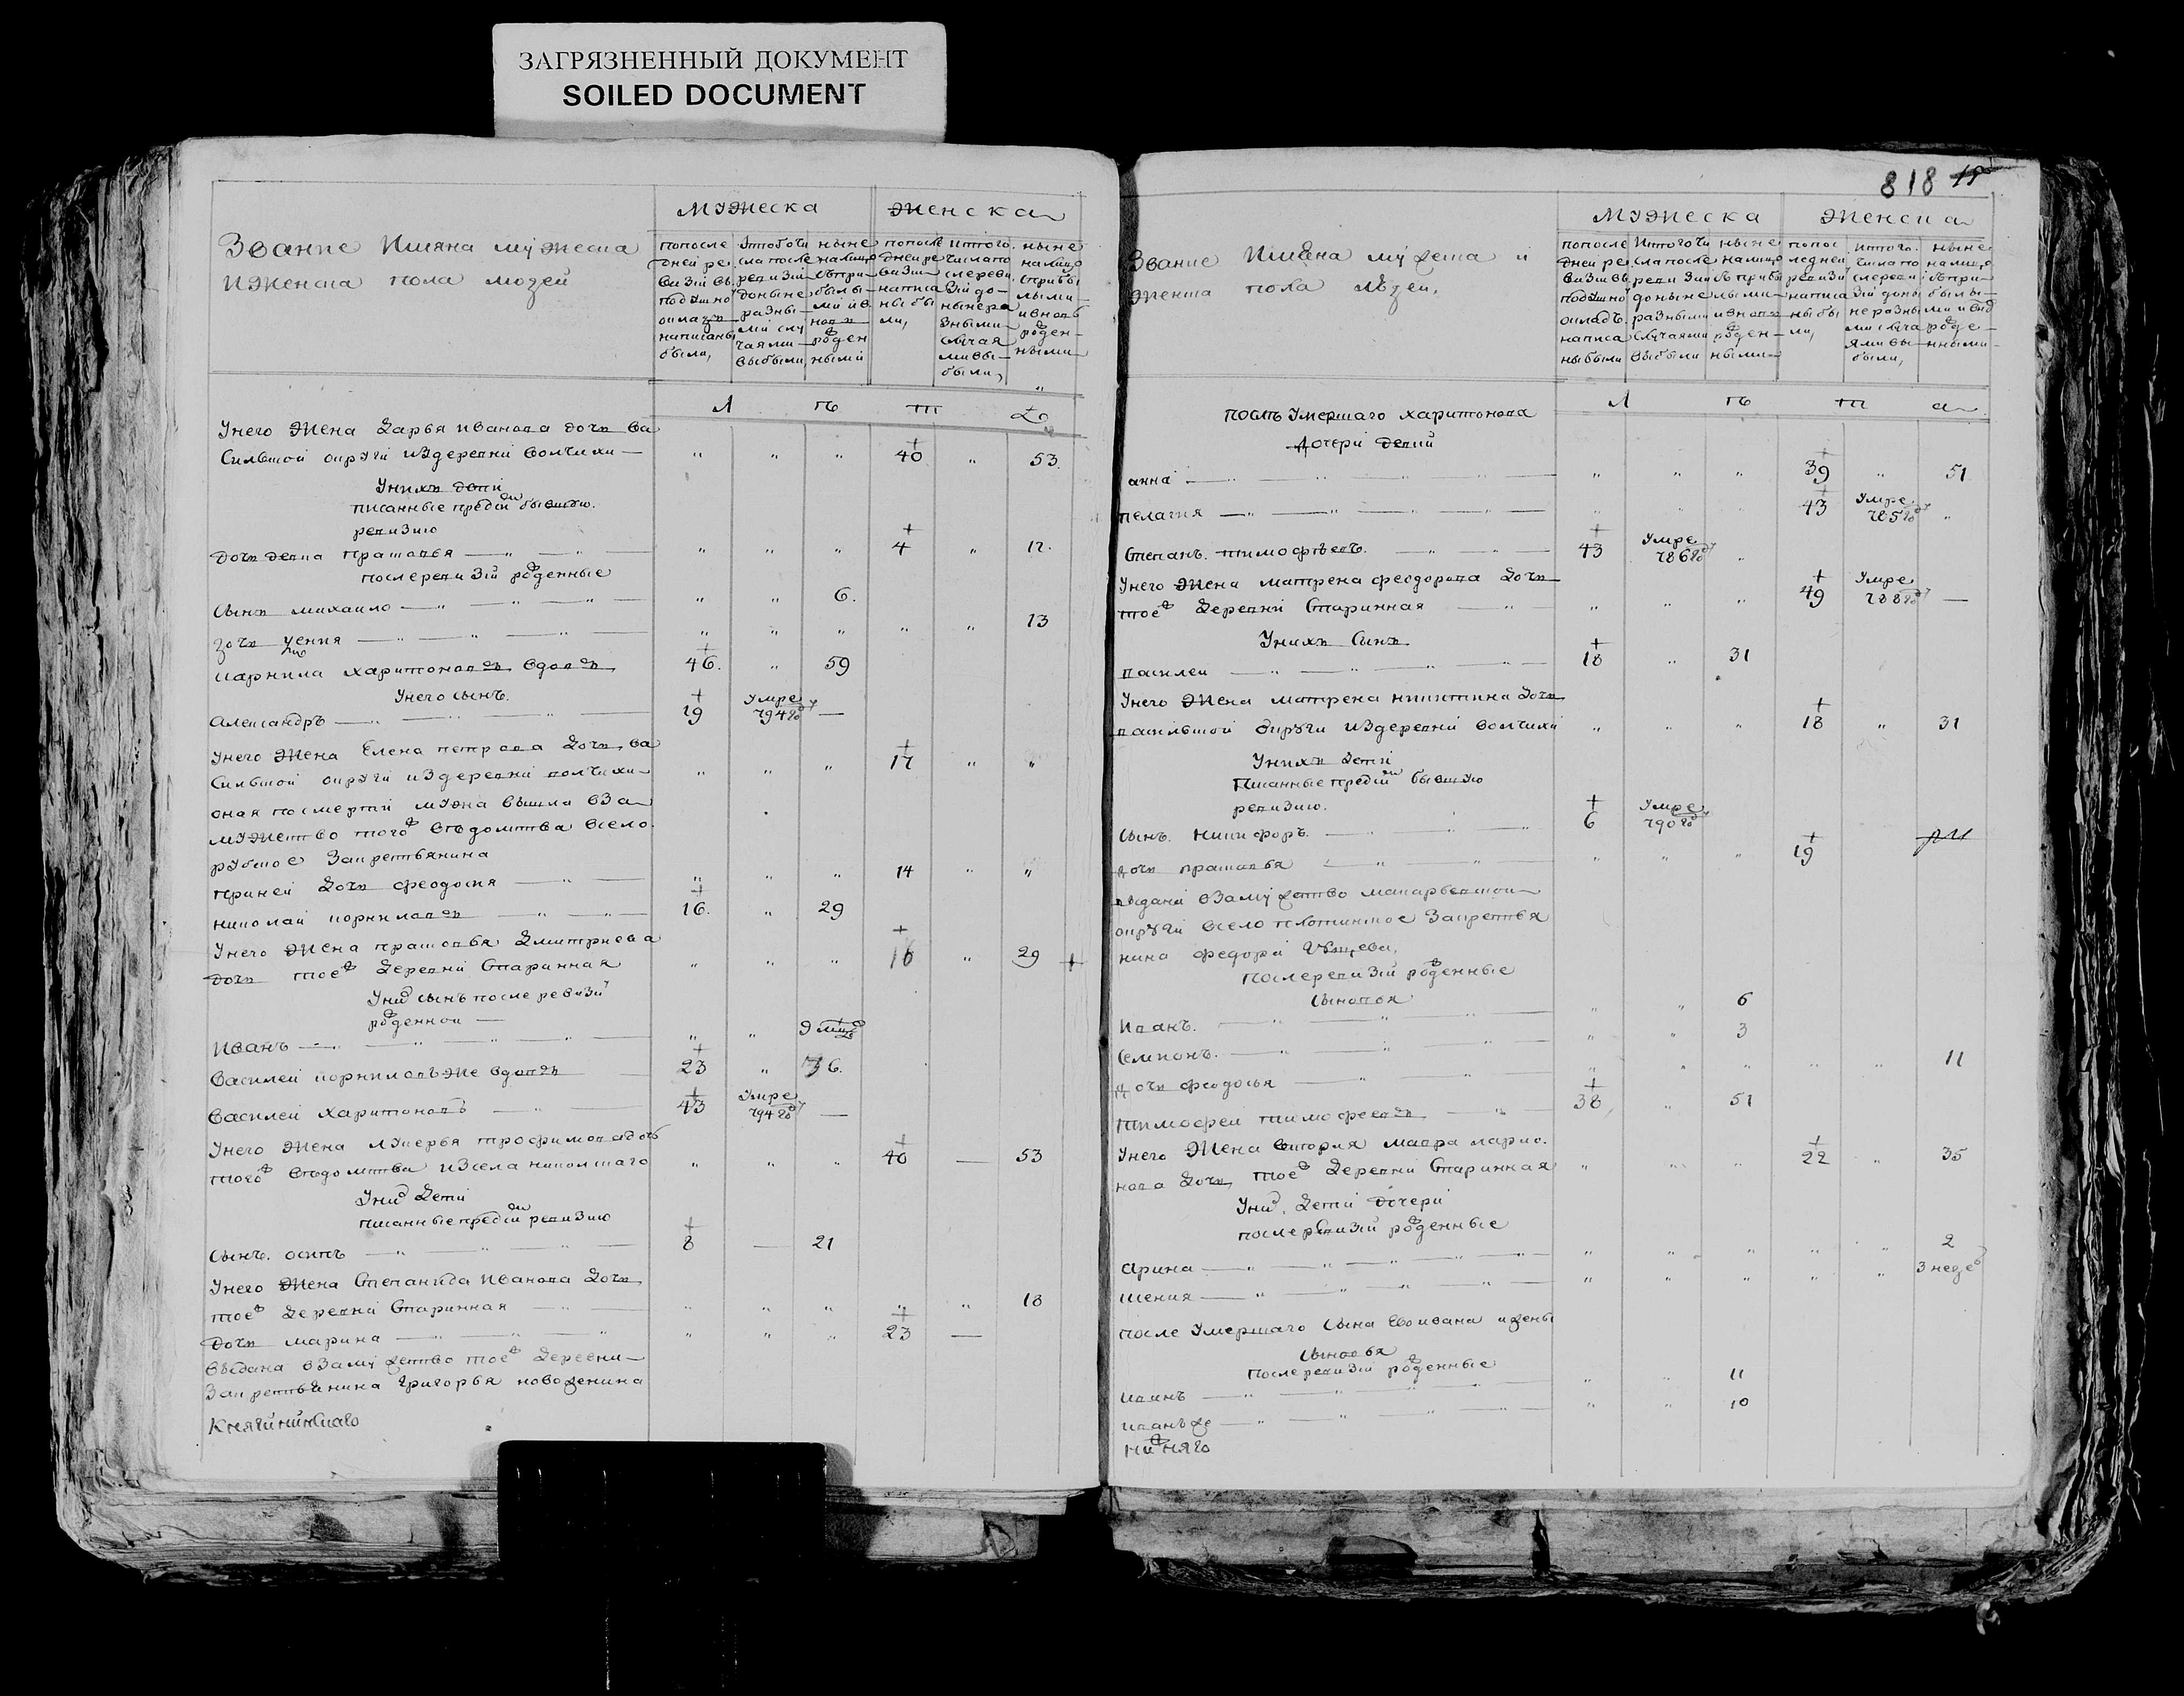 ЗАГРЯЗНЕННЫЙ ДОКУМЕНТ
SOILED DOCUMENT
Звание Имяна мужеска
иженска пола людей
мужеска
женска
попосле дней ревизии вподушной окладъ написаны были,
Изтого числа после ревизии доныне разными случаями выбыли,
ныне налицо сприбылыми ивновь рожденными
попосле дней ревизии написаны были,
изтого числа после ревизии доныне разными случаями выбыли,
ныне налицо сприбылыми ивновь рожденными
Л ѣ т а
Унего жена Дарья Иванова дочь ва
сильской округи издеревни волчихи " " " 40 " 53.
Унихъ дети
писанные впредидущую бывшую
ревизию
дочь девка прасковья " " " 4 " 17.
послеревизии рожденные
сынъ михаило " " 6.
дочь 13
" " " " "
карнила харитоновъ вдовъ 46. " 59
Унего сынъ.
Александръ 19 Умре 794 году —
Унего жена Елена петрова дочь, ва
сильской округи издеревни волчихи " " " 17 " "
оная посмерти мужа вышла вза
мужетво того ведомства всело
закрестьянина
приней дочь феодосия " " " 14 " "
николай корниловъ 16. " 29
Унего жена прасковья дмитриева
дочь тое деревни старинная " " " 16 " 29
Уних сынъ после ревизии
рожденной
Иванъ " " 9 месяцовъ
Василей корниловъ же вдовъ 23 " 36.
Василей харитоновъ 43 Умре 794 году —
Унего жена лукерья трофимова дочь
того ведомства изсела никольскаго " " " 40 — 53
Уних дети
писанные впредидущую ревизию
сынъ. осипъ 8 — 21
Унего жена Степанида Иванова дочь
тое деревни старинная " " " " " 18
дочь марина " " " 23 —
выдана взамужетво тое деревни
закрестьянина григорья новоженина
Княгининскаго
818
Звание Имѣна мужеска и
женска пола людей,
мужеска
женска
попосле дней ревизии вподушной окладъ написаны были
Изтого числа после ревизии доныне разными случаями выбыли
ныне налицо сприбылыми ивновь рожденными
попоследней ревизии написаны были,
изтого числа после ревизии доныне разными случаями выбыли,
ныне налицо сприбылыми ивновь рожденными
Л ѣ т а
послѣ умершаго харитонова
дочери девки
анна " " " 39 " 51
пелагия " " " 43 Умре 785 году "
Степанъ. тимофѣевъ. 43 Умре 786 году "
Унего жена матрена феодорова дочь
тое деревни старинная " " " 49 Умре 788 году —
Унихъ сынъ
василей 18 " 31
Унего жена матрена никитина дочь
васильской округи издеревни волчихи " " " 18 " 31
Унихъ дети
писанные впредидущую бывшую
ревизию.
сынъ. никифоръ. 6 Умре 790 году
дочь прасковья " " " 19
выдана взамужетво макарьевской
округи всело плотинское закрестья
нина федора
послеревизии рожденные
сыновья
Иванъ. " " 6
семионъ. " " 3
дочь феодосья " " " " " 11
тимофей тимофеевъ 38, " 51
Унего жена вторая мавра ларио.
нова дочь, тое деревни старинная " " " 22 " 35
Уних. дети дочери
послеревизии рожденные
арина " " " " " 2
" " " " " 3 недел
после умершаго сына ево ивана и жены
сыновья
послеревизии рожденные
иванъ " " 11
иванъ же " " 10
нижняго